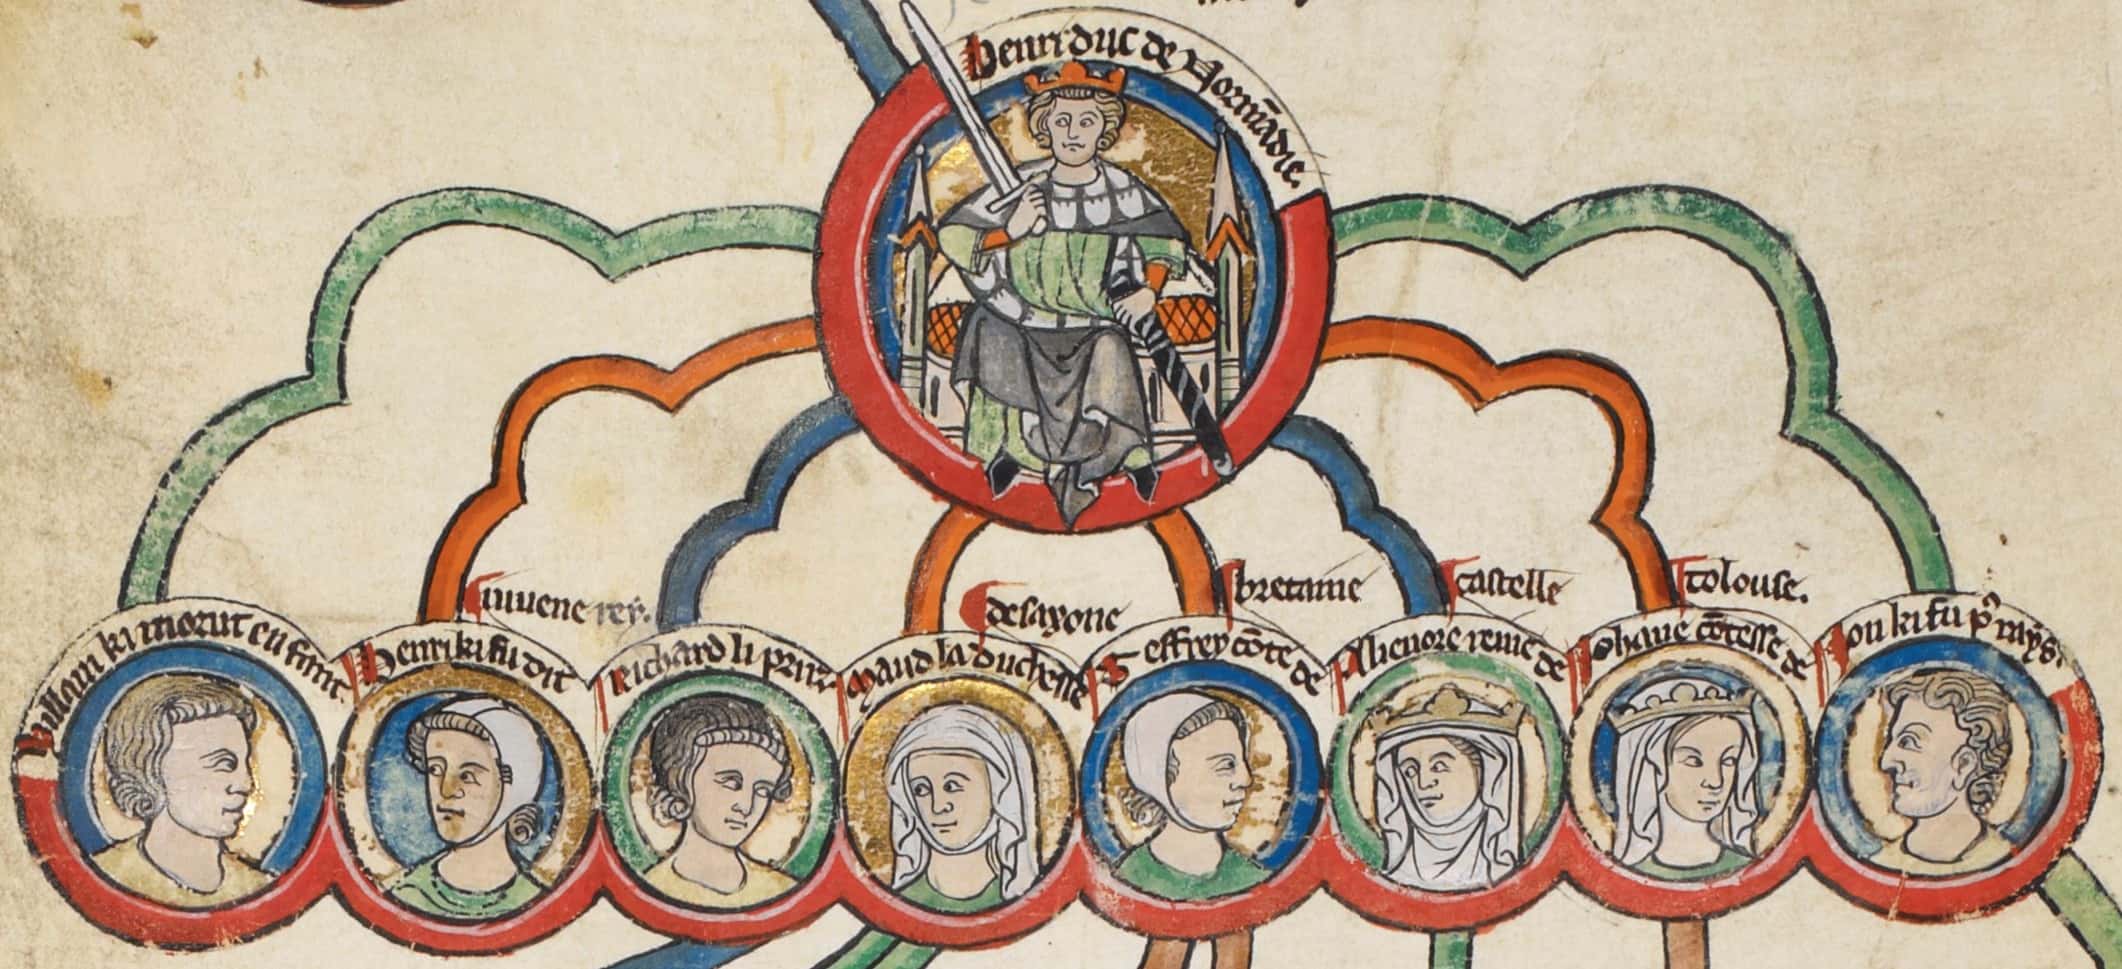 henri duc de Normādie.
Willam ki morut en faunt
henri ki fu dit
iuuene rey.
Richard li prinz
Maud la duchesse
de saxone
Geffrey cōte de
bretaine
Alienore reine de
castelle
Iohane cōtesse de
tolouse.
Ion ki fu pꝰ rays.